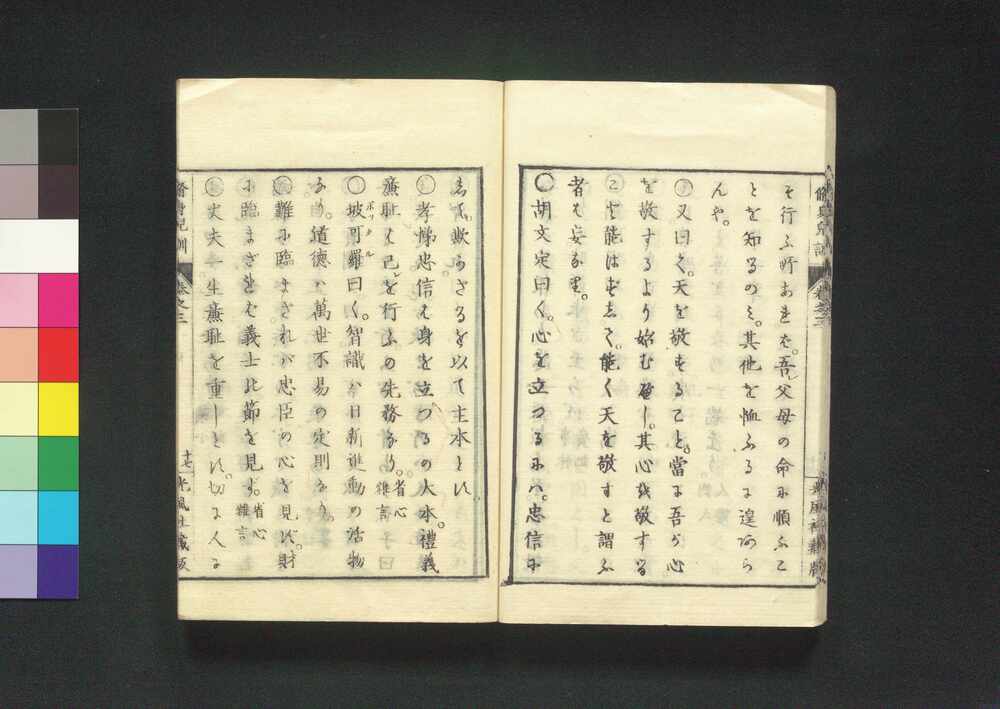 て行ふ所あれば。吾父母の命に順ふこ
とを知るのミ。其他を恤ふるに遑あら
んや。
○又曰く。天を敬することを。當に吾が心
を敬するより始むべし。其心を敬する
こと能はずして。能く天を敬すと謂ふ
者は安な里。
○胡文定曰く。心を立つるにハ。忠信に
して。欺かざるを以て主本とす
○孝悌忠信は身を立つるの大本。禮義
廉耻は己を行ふの先務なり。省心雜言
○坡哥羅曰く。智識ハ日新進動の活物
なり。道德ハ萬世不易の定則なり
○難に臨まざれバ忠臣の心を見ず。財
に臨まざれば義士の節を見ず。省心雜言
○丈夫一生廉耻を重しとす。切に人に
脩身兒訓
卷之三
十七
光風社藏版